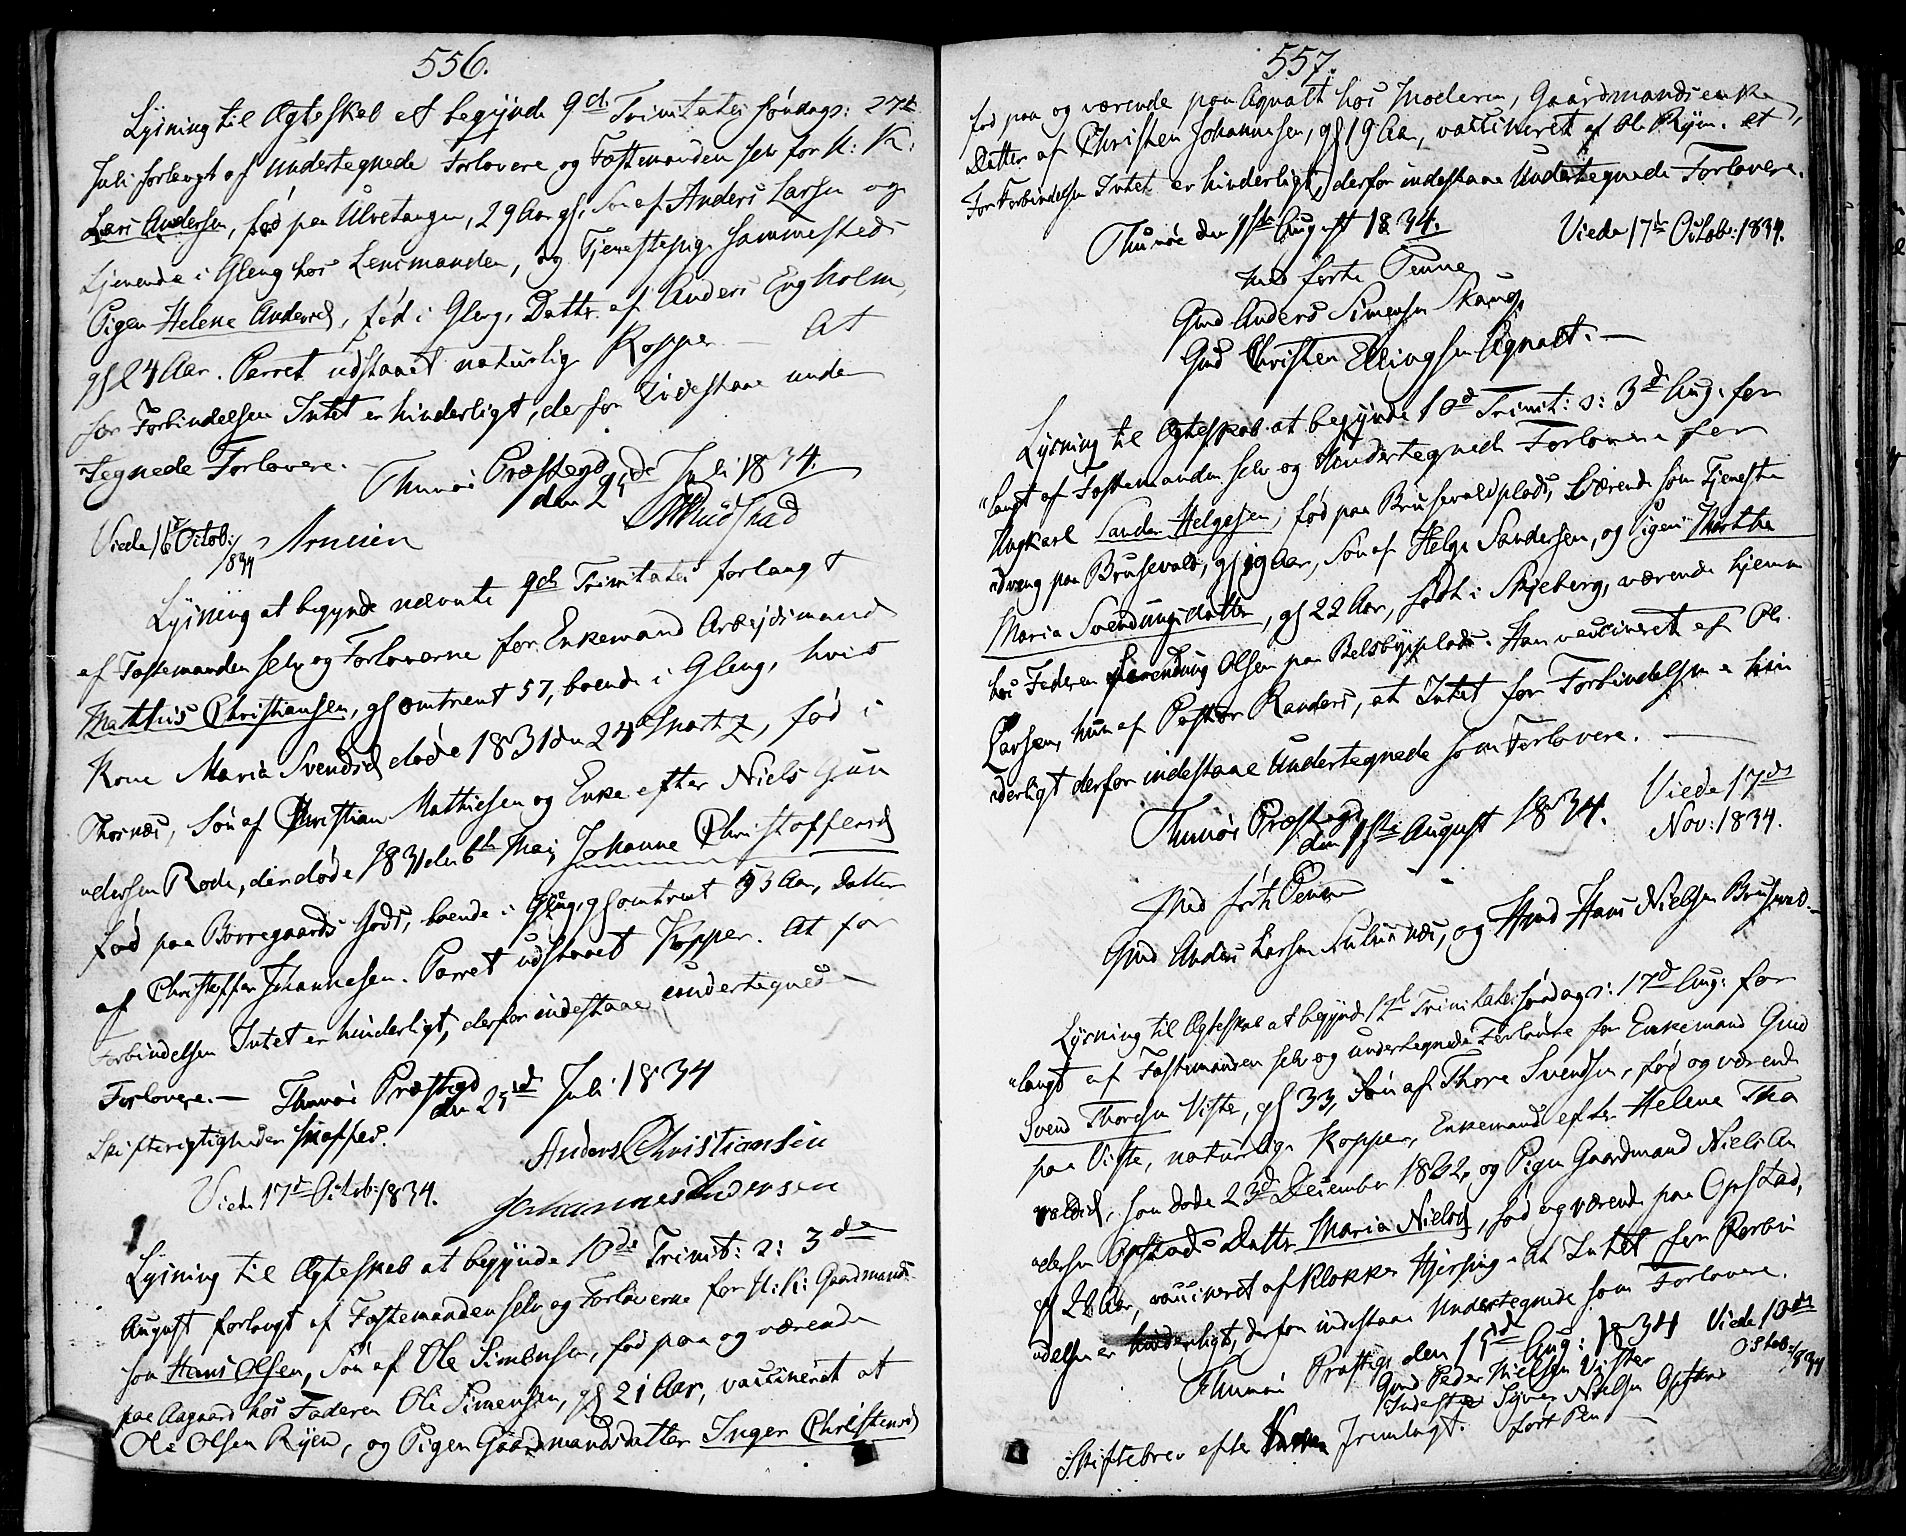 556.
Lysning til Ægteskab at begynde 9d. Trinitatis søndag s: 27d
Juli forlangt af undertegnede Forlovere og Fæstemanden selv for U: K:
Lars Andersen, fød paa Ulvetangen, 29 Aar gl. Søn af Anders Larsen og
tjenende i Gleng hos Lensmanden, og Tjenestepige sammesteds
Pigen Helene Andersd, fød i Gleng, Datter af Anders Engholm,
gl 24 Aar. Parret udstaaet naturlige Kopper — At
for Forbindelsen Intet er hinderligt, derfor indestaae under
tegnede Forlovere.
Thunøe Præstegd
den 25de Juli 1834.
Viede 16 Octob:
1834
Lysning at begynde nævnte 9de Trinitatis forlangt
af Fæstemanden selv og Forloverne for Enkemand Arbejdsmand
Matthis Christiansen, gl omtrent 57, boende i Gleng, hvis
Kone Maria Svendsd døde 1831 den 24d Martz, fød i
Thornæs, Søn af Christian Mathiesen og Enke efter Niels Gun
dersen Rode, der døde 1831 den 6d Maj Johanne Christoffersd
fød paa Borregaards Gods, boende i Gleng, gl omtrent 53 Aar, Datter
af Christoffer Johannesen. Parret udstaaet Kopper. At for
Forbindelsen Intet er hinderligt, derfor indestaae undertegnede
Forlovere. — Thunøe Præstegd
den 25de Juli 1834
Skifterigtigheden skaffes.
Anders Christiansen
Viede 17d Octob: 1834.
Johannes Andersen
Lysning til Ægteskab at begynde 10de Trinit: s: 3de
August forlangt af Fæstemanden selv og Forloverne for U: K: Gaardmands
søn Hans Olsen, Søn af Ole Simensen, fød paa og værende
paa Aagaard hos Faderen Ole Simensen, gl 21 Aar, vaccineret at
Ole Olsen Ryen, og Pigen Gaardmandsdatter Inger Christensd
557.
fød paa og værende paa Agnalt hos Moderen, Gaardmandsenke,
Datter af Christen Johannesen, gl 19 Aar, vaccineret af Ole Ryen. At
for Forbindelsen Intet er hinderligt, derfor indestaae Undertegnede Forlovere.
Thunøe den 1ste August 1834.
Viede 17de Octob: 1834.
med førte Penne
Gmd Anders Simensen
Gmd Christen Ellingsen Agnalt. —
Lysning til Ægteskab at begynde 10d Trinit: s: 3d Aug: for
langt af Fæstemanden selv og Undertegnede Forlovere for
Ungkarl Sander Helgesen, fød paa Brusevaldplads, værende som Tjeneste
dreng paa Brusevald, gl 19 Aar, Søn af Helge Sandersen, og Pigen Marthe
Maria Svendungsdatter, gl 22 Aar, født i Skjeberg, værende hjemme
hos Faderen Svendung Olsen paa Belsbyplads. Han vaccineret af Ole
Larsen, hun af Pastor Randers, at Intet for Forbindelsen er hin
derligt derfor indestaae Undertegnede som Forlovere. —
Thunøe Præstegd
den 1ste August 1834.
Viede 17de
Nov: 1834.
Med førte Penne
Gmd Anders Larsen , og Hmd Hans Nielsen Brusevald.
Lysning til Ægteskab at begynde 12d Trinitatis søndag s: 17d Aug: for
langt af Fæstemanden selv og undertegnede Forlovere for Enkemand Gmd
Svend Thoresen Viste, gl 33, Søn af Thore Svendsen, fød og værende
paa Viste, naturlige Kopper, Enkemand efter Helene Tho
valdsd, som døde 23d December 1832, og Pigen Gaardmand Niels An
dersen Opstads Datter Maria Nielsd, fød og værende paa Opstad,
gl 28 Aar, vaccineret af Klokker Hjersing. At Intet for Forbin
delsen er hinderligt, derfor indestaae Undertegnede som Forlovere.
Thunøe Præstegd den 15d Aug: 1834
Viede 10de
Octob: 1834
Gmd Peder Nielsen Vister
Nielsen Opstad
ført Pen
Skiftebrev efter fremlagt.